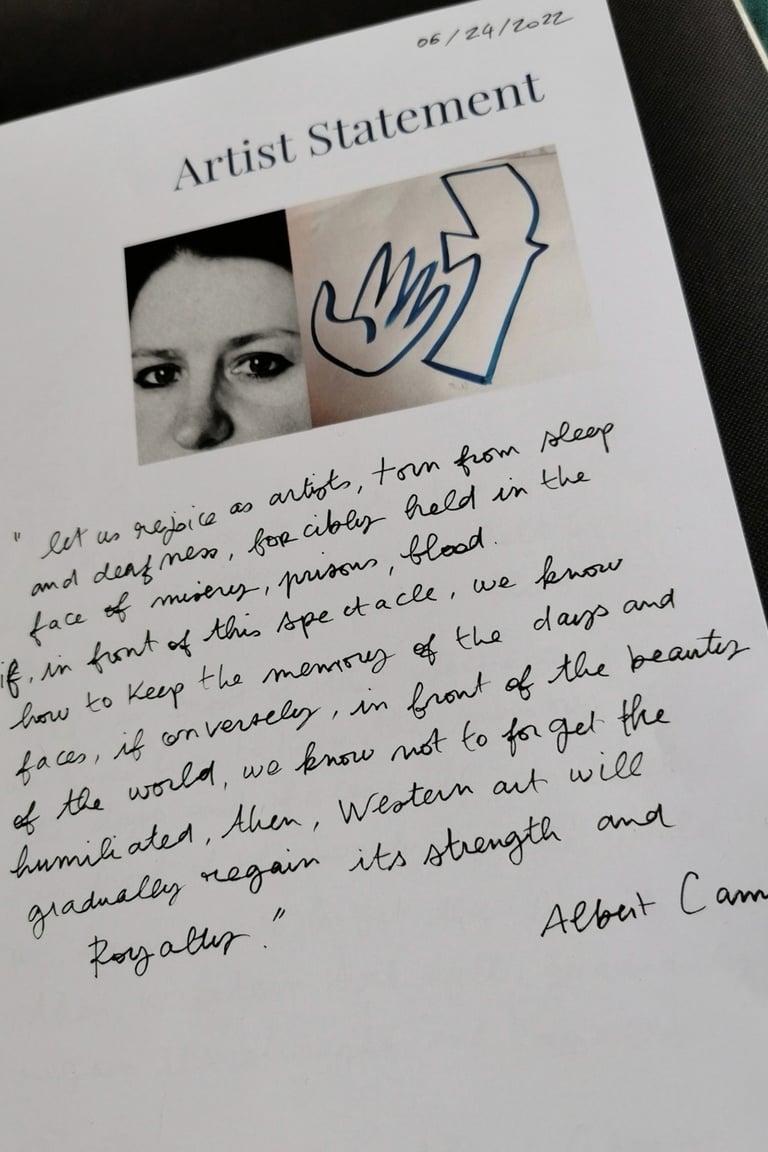 06/24/2022
Artist Statement
" let us rejoice as artists, torn from sleep
and deafness, forcibly held in the
face of misery, prisons, blood.
if, in front of this spectacle, we know
how to keep the memory of the days and
faces, if conversely, in front of the beauty
of the world, we know not to forget the
humiliated, then, Western art will
gradually regain its strength and
Royalty."
Albert Cam